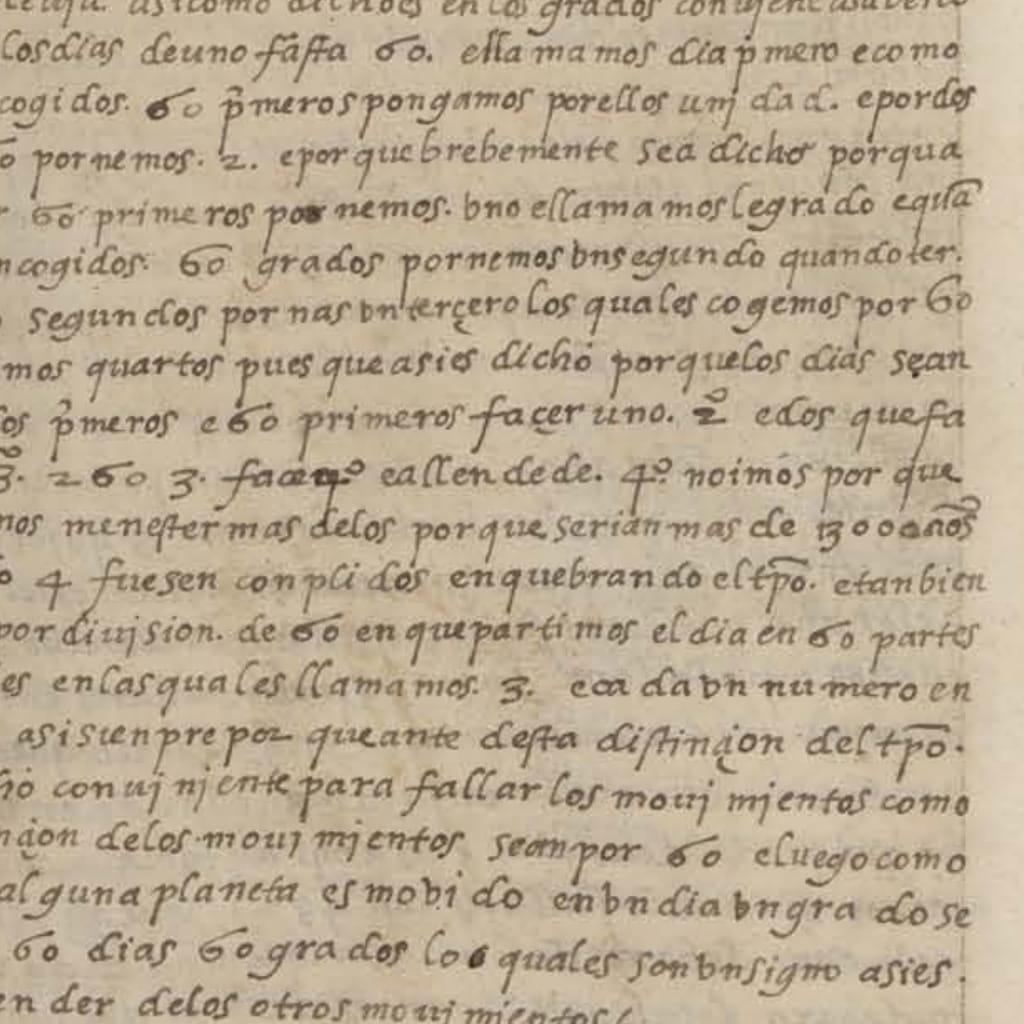 asi como dichoes en los grados
los dias de uno fasta 60. ella ma mos dia p̃mero e como
cogi dos. 60 p̃meros pongamos porellos unj dad. epordos
pornemos. 2. epor que brebemente sea dicho porqua
60 prime ros pornemos. bno ella ma mos le gra do equã
ncogidos. 60 grados pornemos bn segun do quando ter.
segundos por nas vn terçero los quales cogemos por 60
mos quartos pues que asi es dicho por que los dias sean
os p̃meros e 60 primeros façer uno. 2º e dos que fa
3. 2 60 3. facen 4º e allen de de. 4º no imos por que
mos menester mas delos por que serian mas de 13000 años
4 fuesen conpli dos en quebran do el tp̃o. etanbien
por diujsion. de 60 en que partimos el dia en 60 partes
es enlas quales llama mos. 3. e ca da vn numero en
asi sienpre por que ante desta distinçion del tp̃o.
ho conuj njente para fallar los mouj mjentos como
nçion delos mouj mjentos sean por 60 e luego como
alguna planeta es mobi do en bn dia bn gra do se
60 dias 60 grados los quales son bn signo asi es.
en der delos otros mouj mjentos